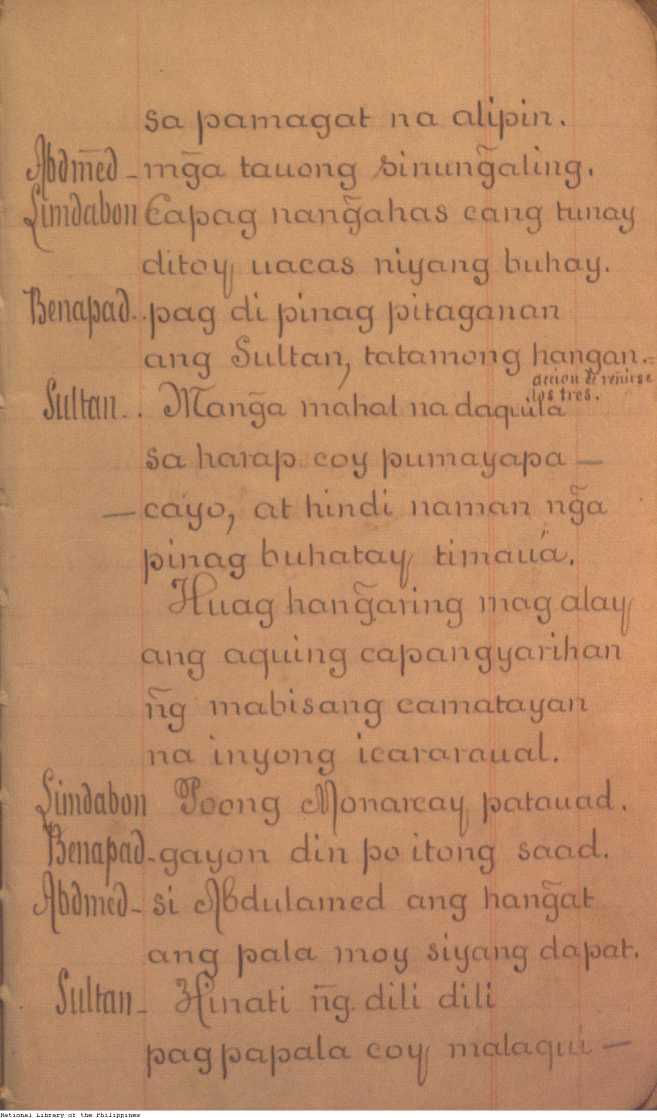 sa pamagat na alipin.
Abdmēd - mg̃a tauong sinung̃aling.
Limdabon Capag nang̃ahas cang tunay
ditoy uacas niyang buhay.
Benapad.. pag di pinag pitaganan
ang Sultan, tatamong hangan.=
accion de reñirse
los tres.
Sultan.. Mang̃a mahal na daquila
sa harap coy pumayapa —
— cayo, at hindi naman ng̃a
pinag buhatay timauä.
Huag hang̃aring mag alay
ang aquing capangyarihan
ñg mabisang camatayan
na inyong icararaual.
Limdabon Poong Monarcay patauad.
Benapad - gayon din po itong saad.
Abdmed - si Abdulamed ang hang̃at
ang pala moy siyang dapat.
Sultan - Hinati ñg. dili dili
pag papala coy malaqui —
National Library of the Philippines